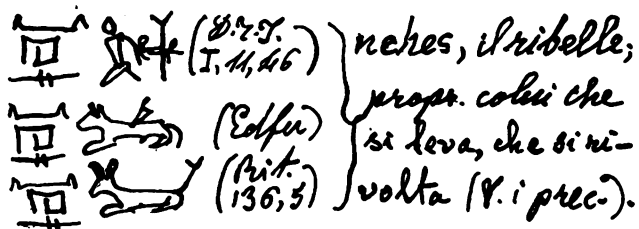 (D.T.J.
I, 11, 46)
(Edfu)
(Rit.
136, 5)
nehes, il ribelle;
propr. colui che
si leva, che si ri-
volta (V. i prec.).